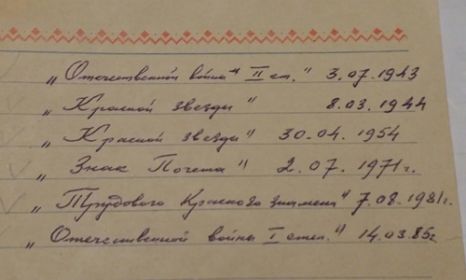 „Отечественной война" II ст." 3.07.1943
„Красной звезды" 8.03.1944
„Красной звезды" 30.04.1954
„Знак Почета" 2.07.1971г.
„Трудового Красного знамени" 7.08.1981г.
„Отечественной войны I степ." 14.03.85г